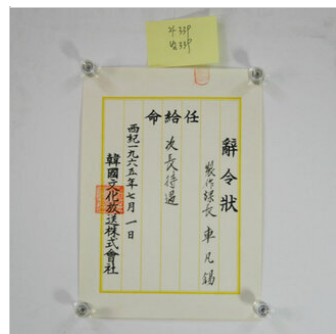 辭令狀
製作課長 車凡錫
任
給
命
次長待遇
西紀一九六五年七月一日
韓國文化放送株式會社